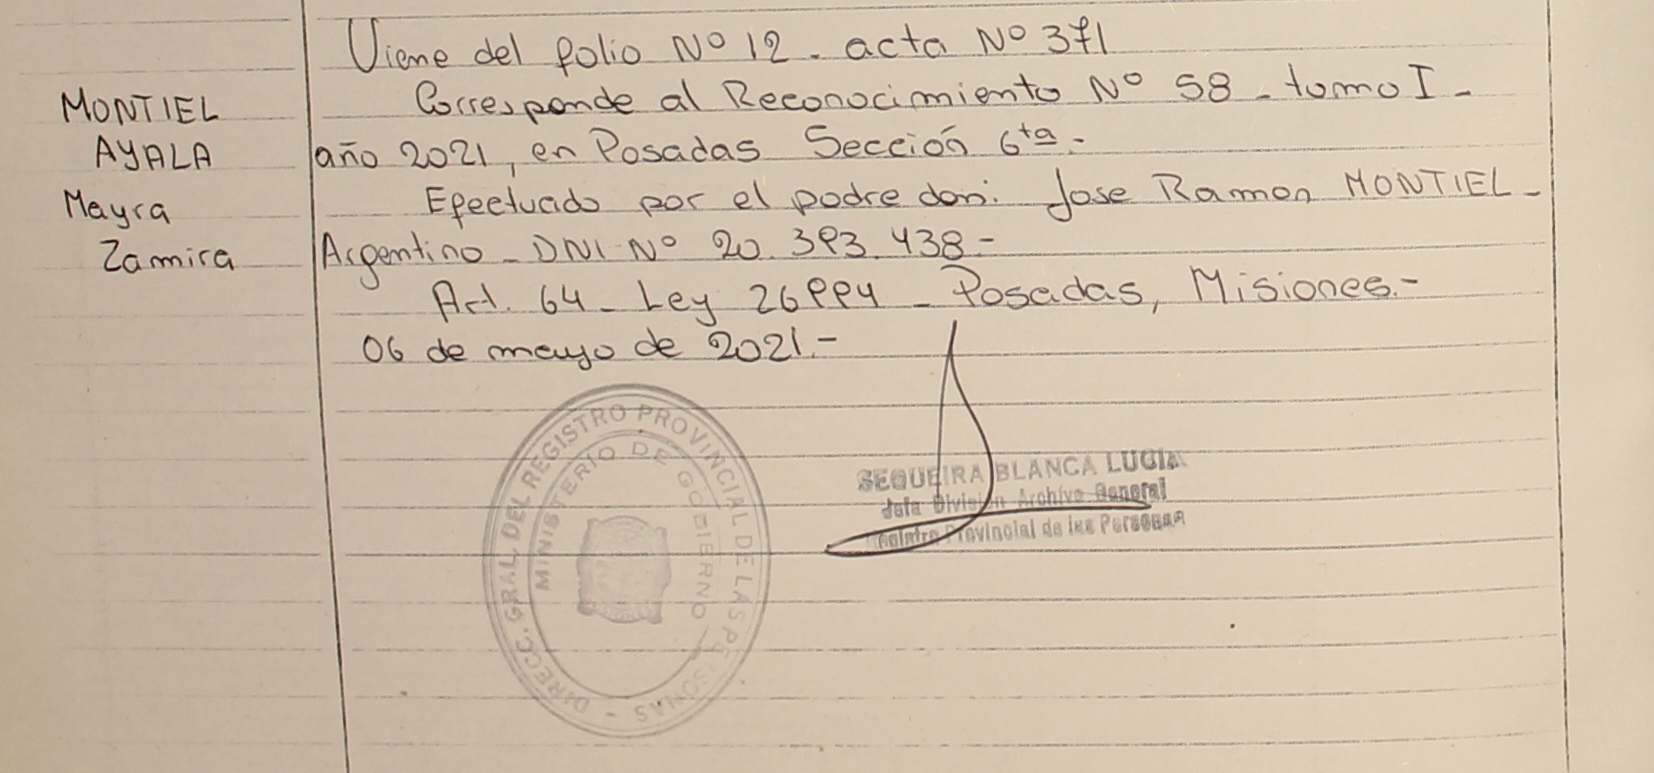 Viene del folio Nº 12 - acta Nº 371
MONTIEL
AYALA
Mayra
Zamira
Corresponde al Reconocimiento Nº 58 - tomo I -
año 2021, en Posadas Sección 6ta.-
Efectuado por el padre don: Jose Ramon MONTIEL -
Argentino - DNI Nº 20.393.438 -
Art. 64 - Ley 26994 - Posadas, Misiones.-
06 de mayo de 2021.-
DIRECC. GRAL. DEL REGISTRO PROVINCIAL DE LAS PERSONAS -
MINISTERIO DE GOBIERNO
SEQUEIRA BLANCA LUCIA
Jefa División Archivo General
Registro Provincial de las Personas